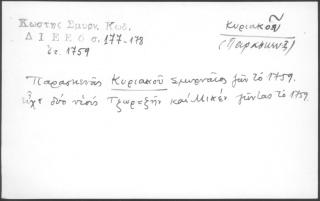 Κωστής Σμυρν. Κωδ.
Δ Ι Ε Ε 6 σ. 177-178
ἐτ. 1759
Κυριακοῦ
(Παρασκευᾶς)
Παρασκευᾶς Κυριακοῦ Σμυρναῖος ζῶν τὸ 1759.
εἶχε δύο υἱοὺς Τζωρτζὴν καὶ Μικὲν ζῶντας τὸ 1759